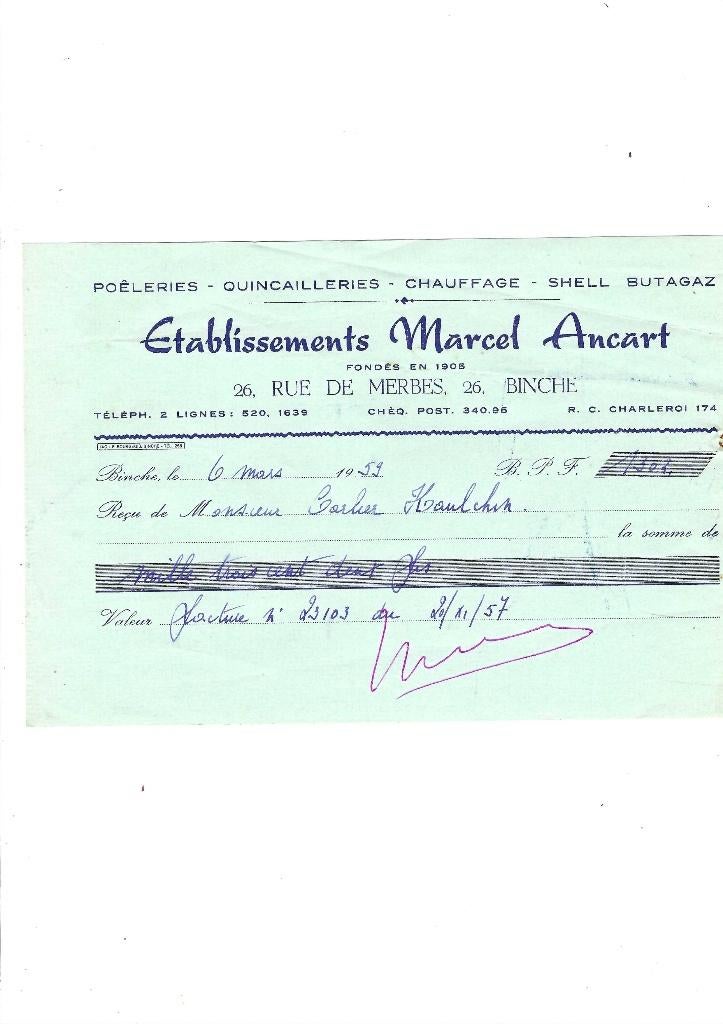 POÊLERIES - QUINCAILLERIES - CHAUFFAGE - SHELL BUTAGAZ
Etablissements Marcel Ancart
FONDÉS EN 1905
26, RUE DE MERBES, 26, BINCHE
TÉLÉPH. 2 LIGNES: 520, 1639 CHÈQ. POST. 340.95 R. C. CHARLEROI 174
Binche, le 6 mars 1959 B. P. F. 1302
Reçu de Monsieur Carlier Haulchin.
la somme de
mille trois cent deux frs.
Valeur facture n° 23103 du 20/XI/57